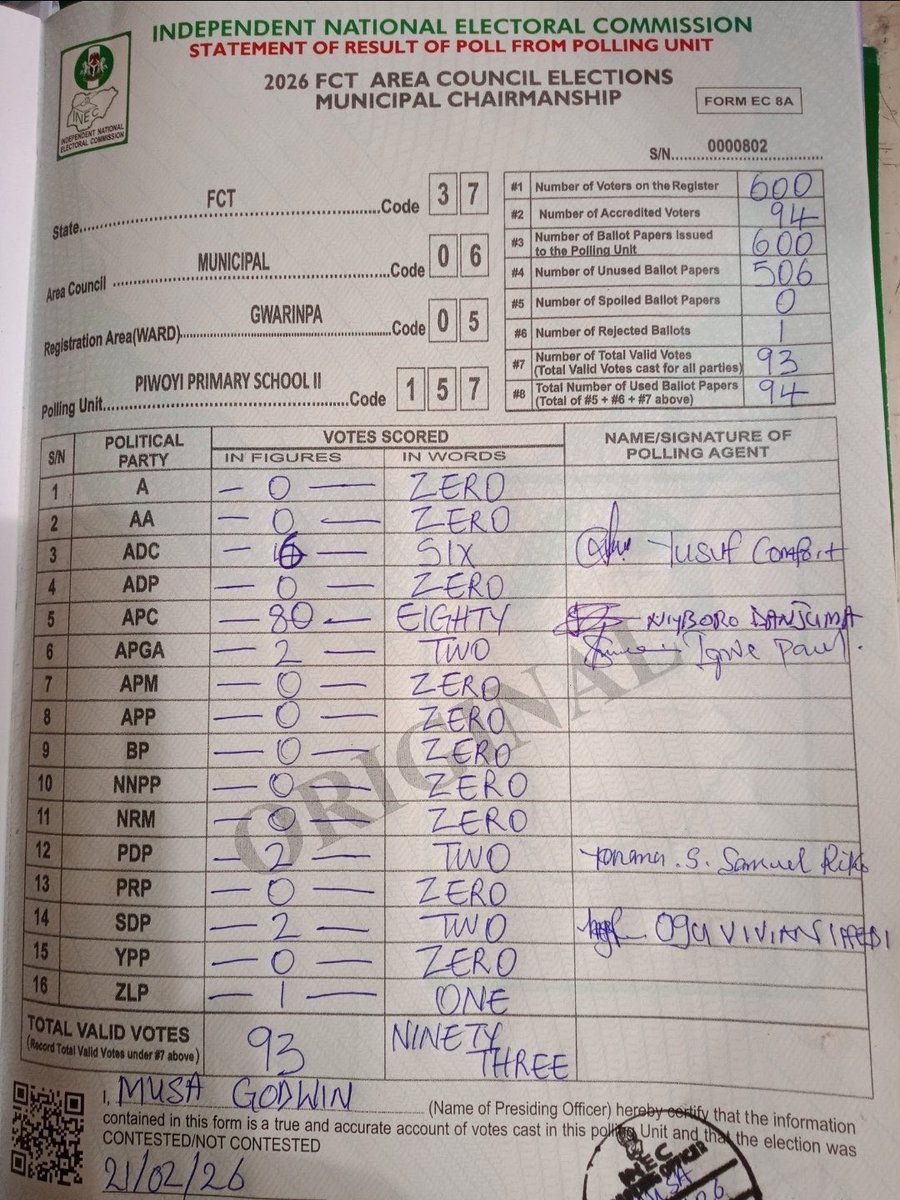 INDEPENDENT NATIONAL ELECTORAL COMMISSION
STATEMENT OF RESULT OF POLL FROM POLLING UNIT
2026 FCT AREA COUNCIL ELECTIONS
MUNICIPAL CHAIRMANSHIP
FORM EC 8A
INEC
INDEPENDENT NATIONAL
ELECTORAL COMMISSION
S/N 0000802
State FCT Code 3 7
Area Council MUNICIPAL Code 0 6
Registration Area(WARD) GWARINPA Code 0 5
Polling Unit PIWOYI PRIMARY SCHOOL II Code 1 5 7
#1 Number of Voters on the Register 600
#2 Number of Accredited Voters 94
#3 Number of Ballot Papers Issued to the Polling Unit 600
#4 Number of Unused Ballot Papers 506
#5 Number of Spoiled Ballot Papers 0
#6 Number of Rejected Ballots 1
#7 Number of Total Valid Votes (Total Valid Votes cast for all parties) 93
#8 Total Number of Used Ballot Papers (Total of #5 + #6 + #7 above) 94
S/N POLITICAL PARTY VOTES SCORED NAME/SIGNATURE OF POLLING AGENT
IN FIGURES IN WORDS
1 A — 0 — ZERO
2 AA — 0 — ZERO
3 ADC — 6 SIX Yusuf Comfort
4 ADP — 0 — ZERO
5 APC — 80 — EIGHTY DANJUMA
6 APGA — 2 — TWO Igwe Paul.
7 APM — 0 — ZERO
8 APP — 0 — ZERO
9 BP — 0 — ZERO
10 NNPP — 0 — ZERO
11 NRM — 0 — ZERO
12 PDP — 2 — TWO S. Samuel
13 PRP — 0 — ZERO
14 SDP — 2 — TWO VIVIAN
15 YPP — 0 — ZERO
16 ZLP — 1 — ONE
ORIGINAL
TOTAL VALID VOTES (Record Total Valid Votes under #7 above) 93 NINETY THREE
I, MUSA GODWIN (Name of Presiding Officer) hereby certify that the information
contained in this form is a true and accurate account of votes cast in this polling Unit and that the election was
CONTESTED/NOT CONTESTED
21/02/26
INEC
MUSA